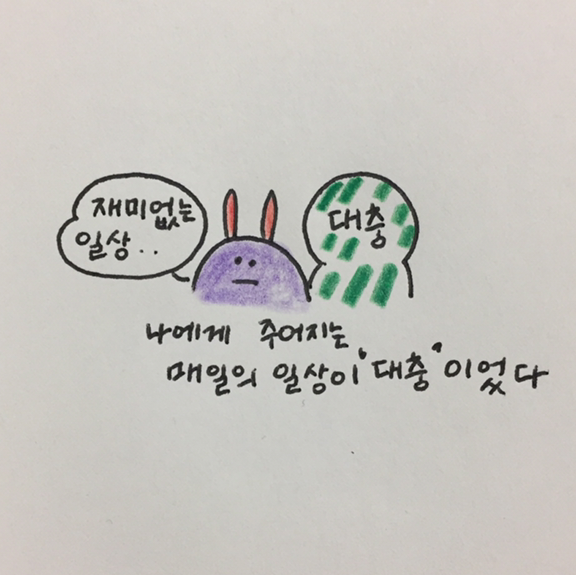 재미없는
일상..
대충
나에게 주어지는
매일의 일상이 "대충"이었다